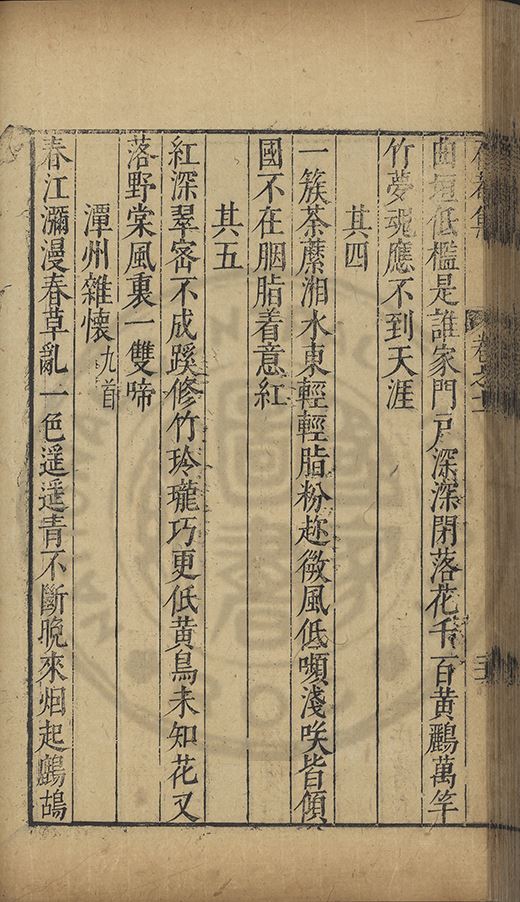 曲垣低檻是誰家門戸深深閉落花千百黃鸝萬竿
竹夢魂應不到天涯
其四
一簇荼蘼湘水東輕輕脂粉趂微風低嚬淺咲皆傾
國不在胭脂着意紅
其五
紅深翠宻不成蹊修竹玲瓏巧更低黃鳥未知花又
落野棠風裏一雙啼
潭州雜懷九首
春江瀰漫春草亂一色遥遥青不斷晚來烟起鷓鴣